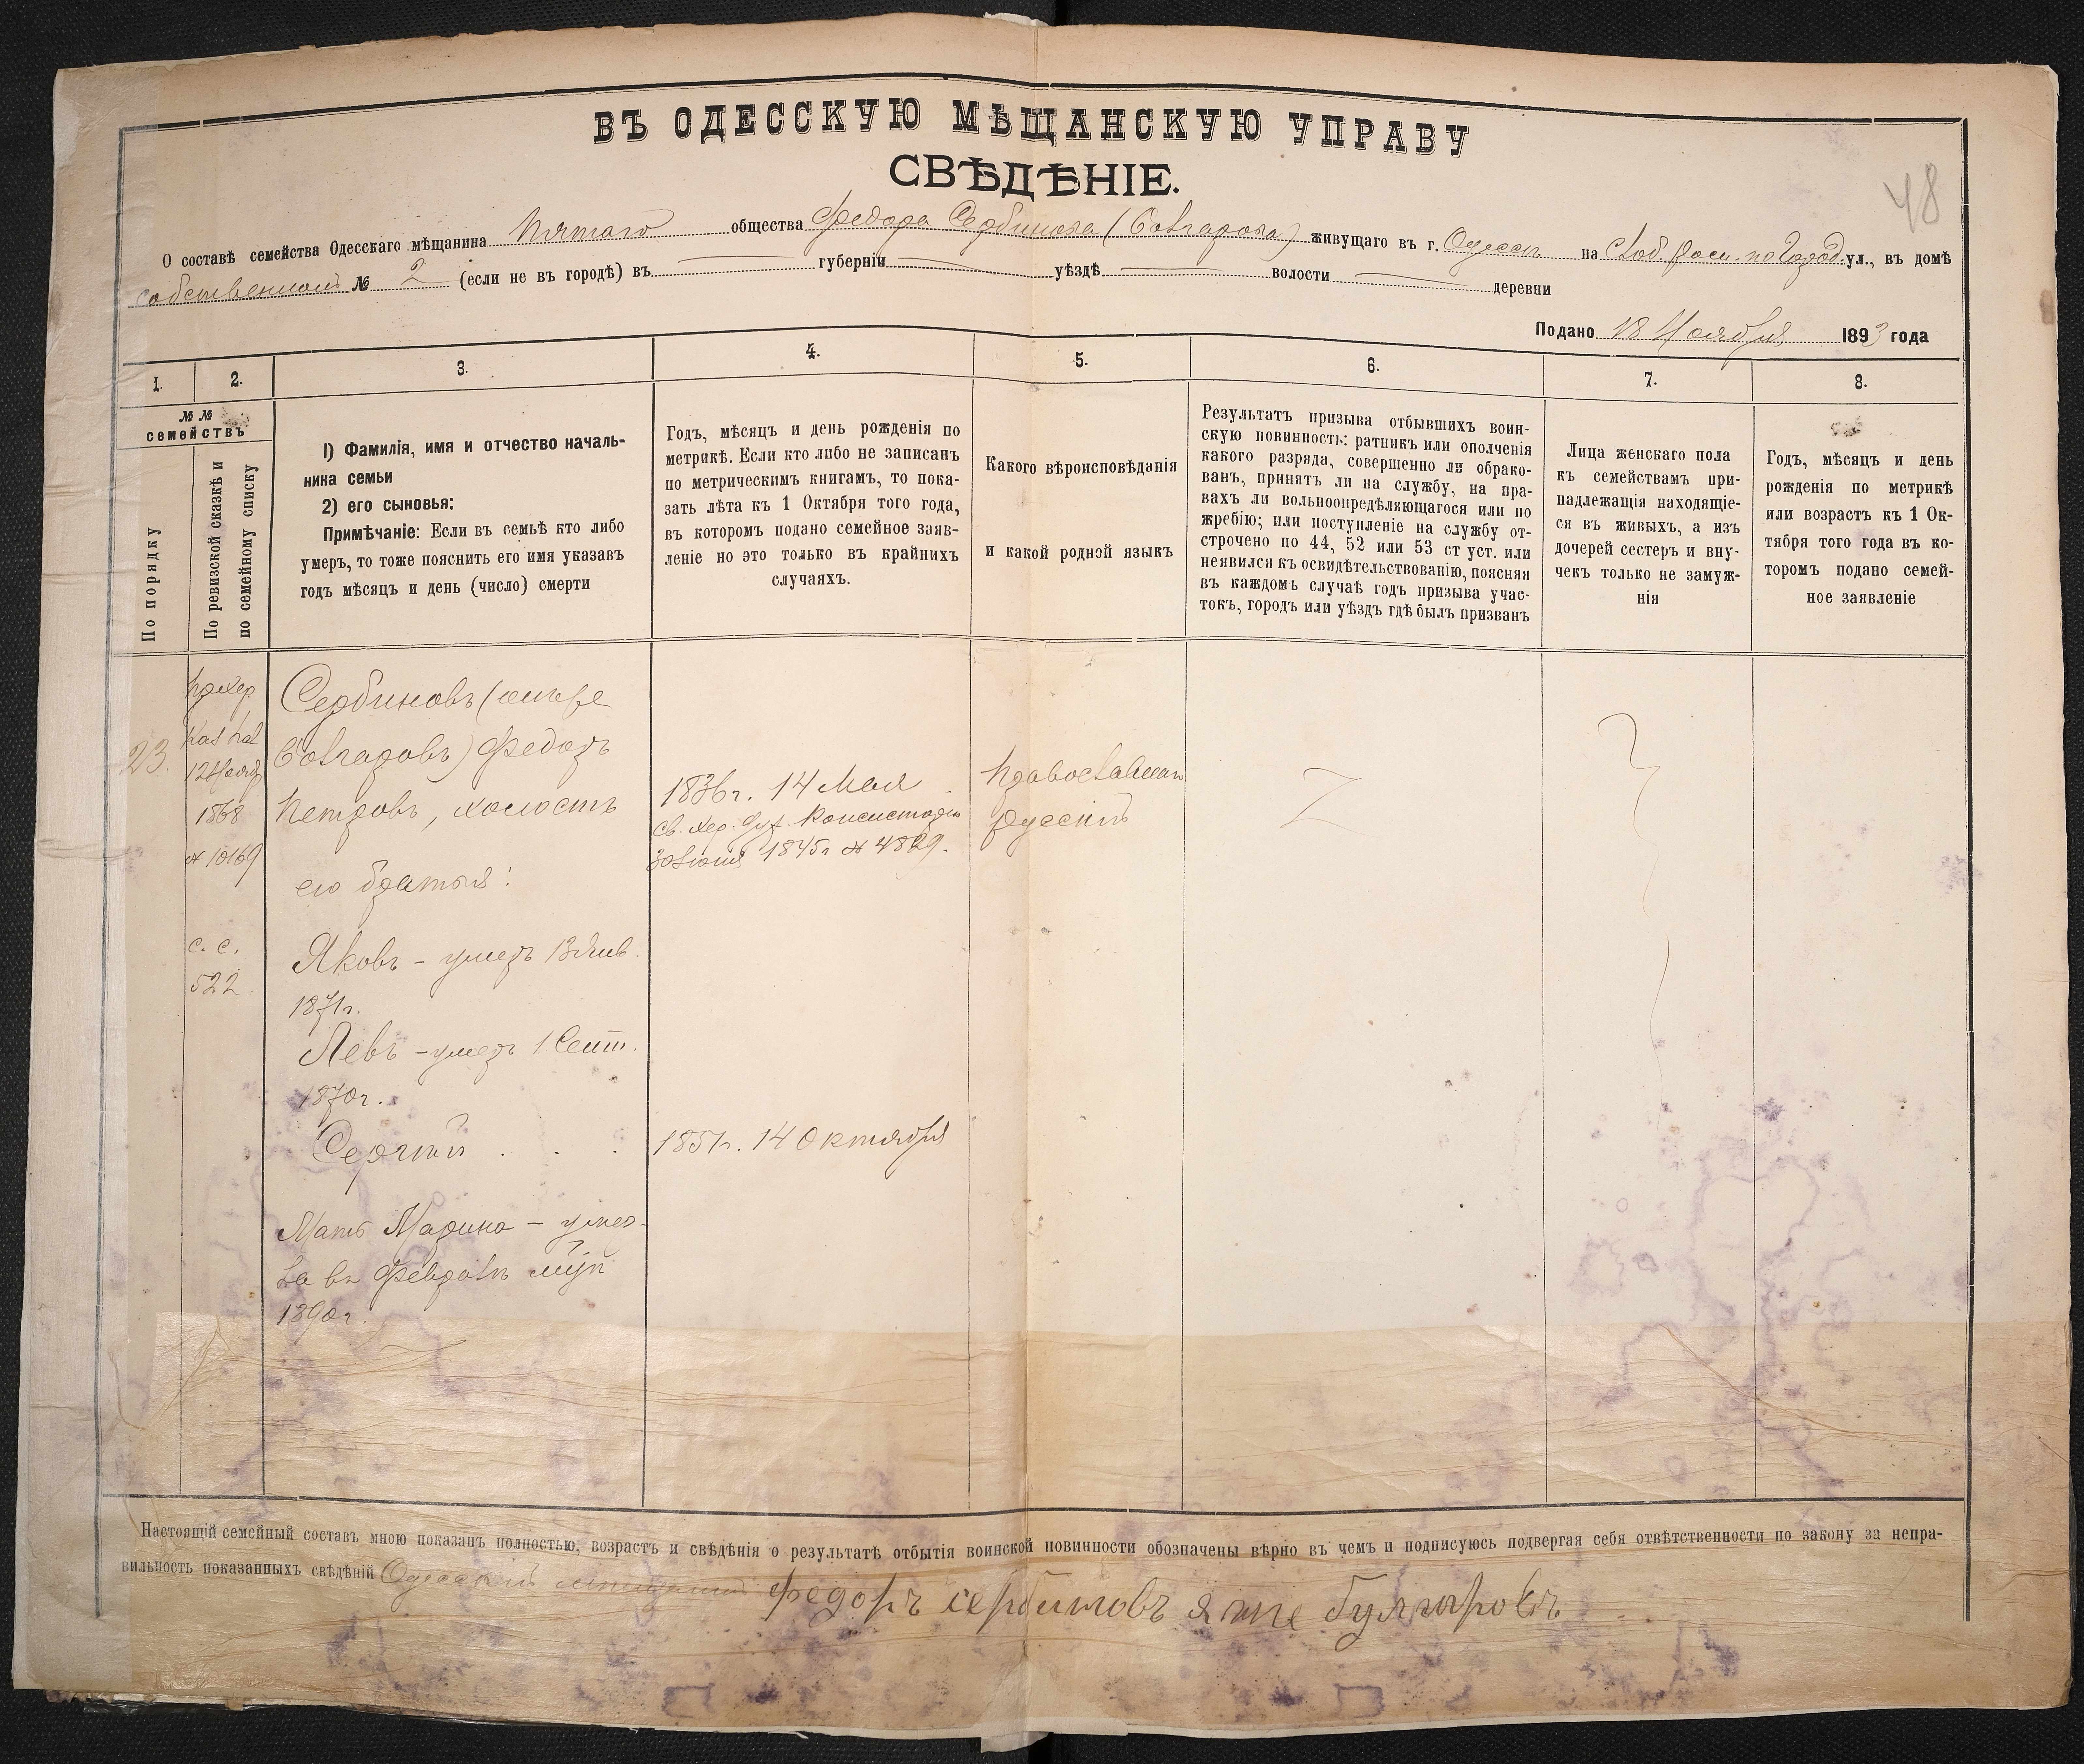 ВЪ ОДЕССКУЮ МѢЩАНСКУЮ УПРАВУ
СВѢДѢНІЕ.
48
О составѣ семейства Одесскаго мѣщанина Пятаго общества Федора Сербинова (Болгарова) живущаго въ г. Одессѣ на Слоб. Ром. по Город. ул., въ домѣ
собственномъ № 2 (если не въ городѣ) въ губерніи уѣздѣ волости деревни
Подано 18 Ноября 1893 года
1.
2.
3.
4.
5.
6.
7.
8.
№ №
семействъ
По порядку
По ревизской сказкѣ и
по семейному списку
1) Фамилія, имя и отчество началь-
ника семьи
2) его сыновья:
Примѣчаніе: Если въ семьѣ кто либо
умеръ, то тоже пояснить его имя указавъ
годъ мѣсяцъ и день (число) смерти
Годъ, мѣсяцъ и день рожденія по
метрикѣ. Если кто либо не записанъ
по метрическимъ книгамъ, то пока-
зать лѣта къ 1 Октября того года,
въ которомъ подано семейное заяв-
леніе но это только въ крайнихъ
случаяхъ.
Какого вѣроисповѣданія
и какой родной языкъ
Результатъ призыва отбывшихъ воин-
скую повинность: ратникъ или ополченія
какого разряда, совершенно ли обрако-
ванъ, принятъ ли на службу, на пра-
вахъ ли вольноопредѣляющагося или по
жребію; или поступленіе на службу от-
строчено по 44, 52 или 53 ст уст. или
неявился къ освидѣтельствованію, поясняя
въ каждомъ случаѣ годъ призыва учас-
токъ, городъ или уѣздъ гдѣ былъ призванъ
Лица женскаго пола
къ семействамъ при-
надлежащія находящіе-
ся въ живыхъ, а изъ
дочерей сестеръ и вну-
чекъ только не замуж-
нія
Годъ, мѣсяцъ и день
рожденія по метрикѣ
или возрастъ къ 1 Ок-
тября того года въ ко-
торомъ подано семей-
ное заявленіе
23.
пр. Хер.
Каз. Пал.
12 Нояб.
1868
№ 10169
с. с.
522
Сербиновъ (онъ же
Болгаровъ) Федоръ
Петровъ, холостъ
его братья:
Яковъ - умеръ 13 Янв.
1871г.
Левъ - умеръ 1 Сент.
1870г.
Сергій
Мать Марина - умер-
ла въ Февралѣ м-цѣ
1890г.
1836г. 14 Мая
св. Хер. Дух. Консисторіи
30 Іюня 1845г № 4829.
1851г. 14 Октября
православнаго
русскій
Настоящій семейный составъ мною показанъ полностью, возрастъ и свѣдѣнія о результатѣ отбытія воинской повинности обозначены вѣрно въ чемъ и подписуюсь подвергая себя отвѣтственности по закону за непра-
вильность показанныхъ свѣдѣній Одесскій мѣщанинъ Федоръ Сербиновъ я же булгаровъ